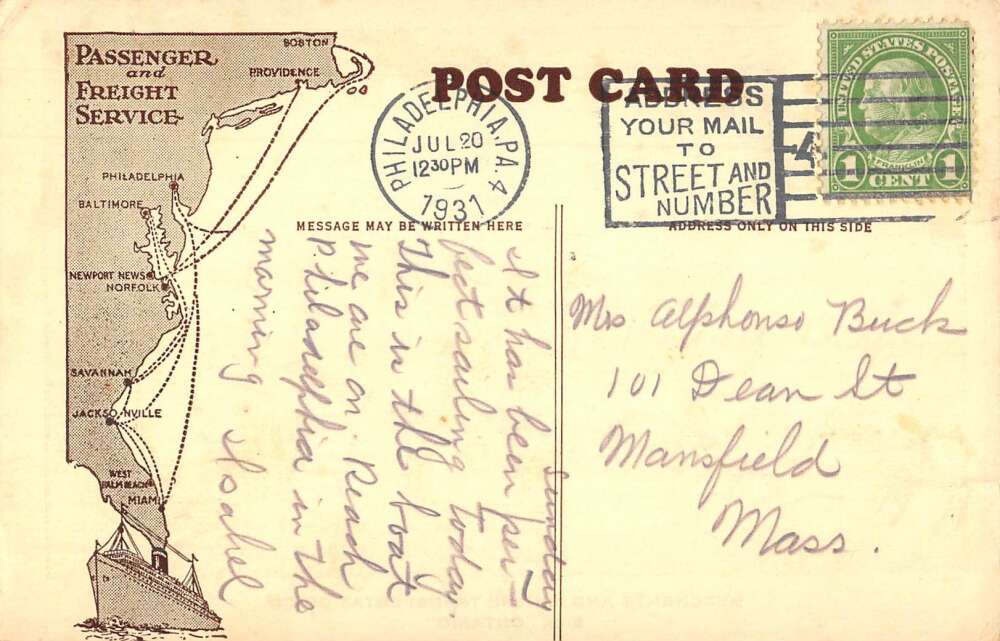 PASSENGER
and
FREIGHT
SERVICE
BOSTON
PROVIDENCE
PHILADELPHIA
BALTIMORE
NEWPORT NEWS
NORFOLK
SAVANNAH
JACKSONVILLE
WEST
PALM BEACH
MIAMI
POST CARD
PHILADELPHIA, PA. 4
JUL 20
12 30 PM
1931
ADDRESS
YOUR MAIL
TO
STREET AND
NUMBER
4
UNITED STATES POSTAGE
FRANKLIN
1 CENT 1
MESSAGE MAY BE WRITTEN HERE
ADDRESS ONLY ON THIS SIDE
Sunday
It has been per-
fect sailing today.
This is the boat
we are on. Reach
Philadelphia in the
morning Isabel
Mrs Alphonso Buck
101 Dean St
Mansfield
Mass.